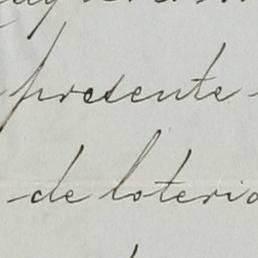 presente
de loteria